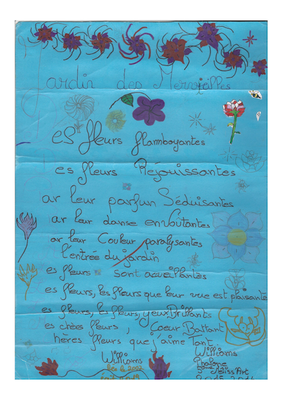 Jardin des Merveilles
es fleurs flamboyantes
es fleurs Rejouissantes
ar leur parfun Séduisantes
ar leur danse envoutantes
ar leur Couleur paralysantes
l'entrée du jardin
es fleurs sont acceuillantes
es fleurs, les fleurs que leur vue est plaisante
es fleurs, les fleurs, yeux Brillants
es chères fleurs, Coeur Battant
hères fleurs que j'aime Tant
Williams Williams